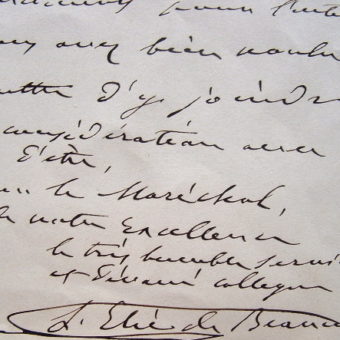 pour
avez bien voulu
d'y joindre
considération avec
d'être,
le Maréchal,
de votre Excellence
le très humble servi
et dévoué collègue
L. Elie de Beau